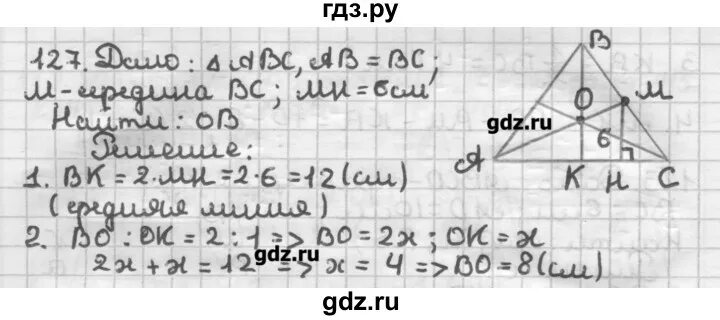 гдз.ру
127. Дано: △ ABC, AB = BC;
M-середина BC; MH = 6см
Найти: OB
Решение:
1. BK = 2·MH = 2·6 = 12 (см)
(средняя линия)
2. BO : OK = 2 : 1 => BO = 2x ; OK = x
2x + x = 12 => x = 4 => BO = 8 (см)
B
O
M
6
A
K
H
C
gdz.ru
gdz.ru
gdz.ru